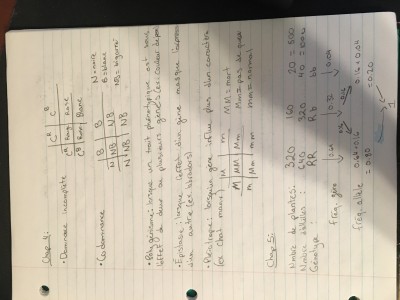 Chap 4:
• Dominance incomplète
C^R C^B
C^R Rouge Rose
C^B Rose Blanc
• Codominance
B B
N NB NB
N NB NB
N = noire
B = blanc
NB = bigarré
• Polygénisme: lorsque un trait phénotypique est sous
l'effet de deux ou plusieurs gènes (ex: couleur de peau
• Épistasie: lorsque l'effet d'un gène masque
d'un autre (ex labradors)
• Pléiotropie: lorsqu'un gène influe plus d'un caractère
(ex chat manx)
M m
M MM Mm
m Mm mm
MM = mort
Mm = pas de queue
mm = normal
Chap 5:
Nombre de plantes: 320 160 20 = 500
Nombre d'allèles: 640 320 40 = 1000
Génotype: RR Rb bb
fréq. géno 0.64 0.32 0.04
fréq. allèle 0.64 + 0.16 0.16 + 0.04
= 0.80 = 0.20
1